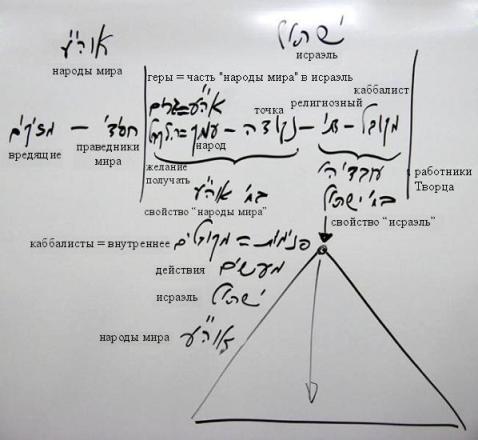 אוה"ע ישראל
народы мира исраэль
геры = часть "народы мира" в исраэль
каббалист
точка религиозный
אוה"ע = גרים
מזיקים – חסידי – עמך = הקהל – נקודה – דתי – מקובל
вредящие праведники мира народ
желание получать
עובדי ה'
работники Творца
בח' אוה"ע בח' ישראל
свойство "народы мира" свойство "исраэль"
каббалисты = внутреннее פנימיות = מקובלים
действия מעשים
исраэль ישראל
народы мира אוה"ע